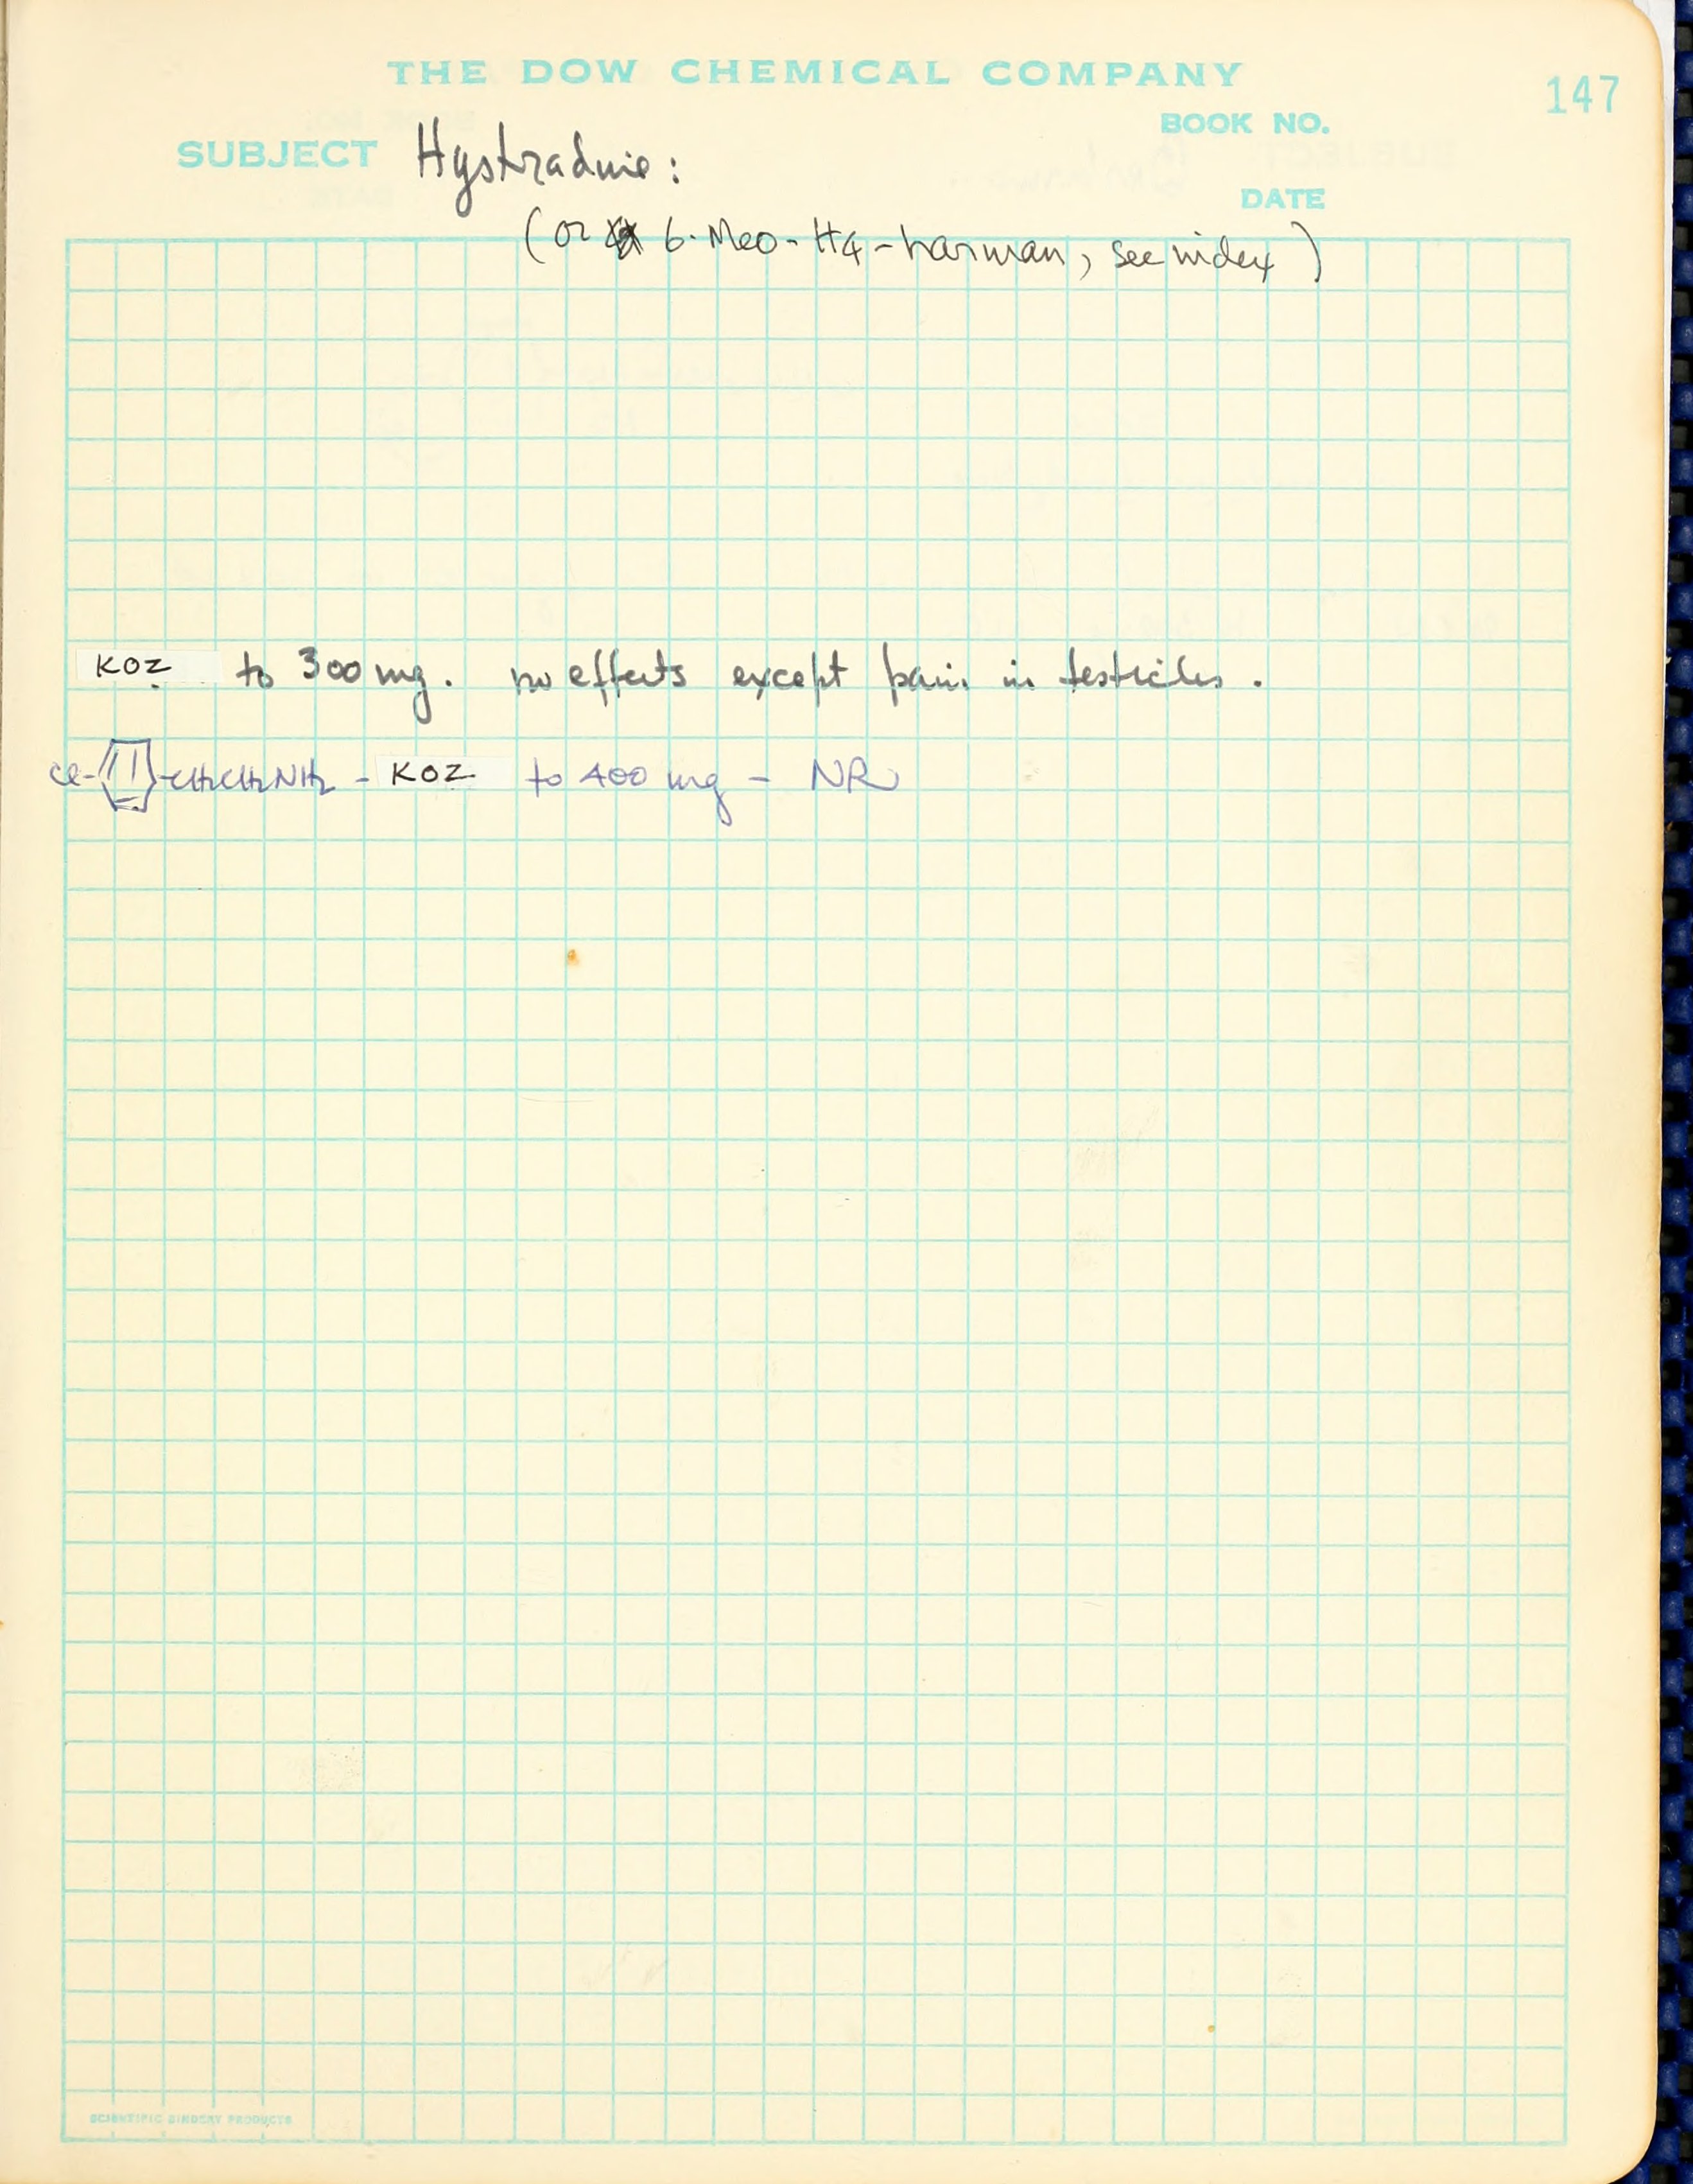 THE DOW CHEMICAL COMPANY
147
BOOK NO.
SUBJECT Hystradnie:
DATE
(or 6-MeO-H4-harman, see index)
KOZ to 300 mg. no effects except pain in testicles.
Cl- -CH2CH2NH2 - KOZ to 400 mg - NR
SCIENTIFIC BINDERY PRODUCTS